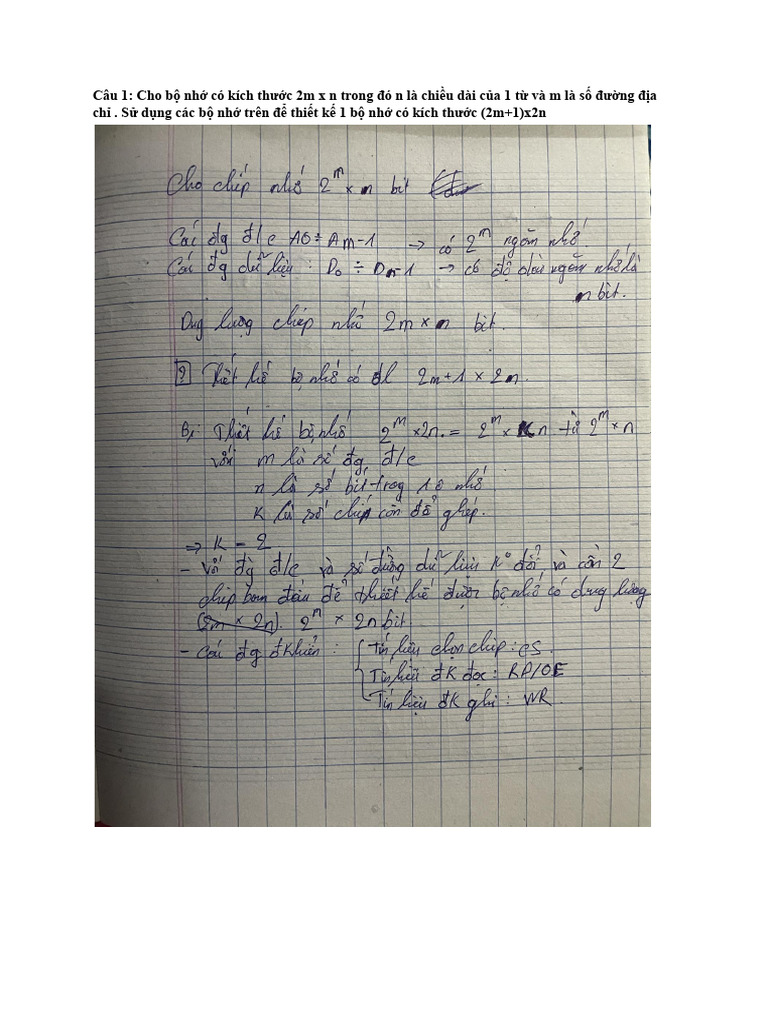 Câu 1: Cho bộ nhớ có kích thước 2m x n trong đó n là chiều dài của 1 từ và m là số đường địa
chỉ . Sử dụng các bộ nhớ trên để thiết kế 1 bộ nhớ có kích thước (2m+1)x2n
Cho chíp nhớ 2^m x n bit
Các đg đ/c A0 ÷ Am-1 → có 2^m ngăn nhớ.
Các đg dữ liệu : D0 ÷ Dn-1 → có độ dài ngăn nhớ là
n bit.
Dung lượng chíp nhớ 2m x n bit.
? Thiết kế bộ nhớ có dl 2m+1 x 2n.
B1: Thiết kế bộ nhớ 2^m x 2n. = 2^m x Kn từ 2^m x n
với m là số đg đ/c
n là số bit trog 1 ô nhớ
K là số chíp cần để ghép.
⇒ K = 2
- Với đg đ/c và số đường dữ liệu K° đổi và cần 2
chíp ban đầu để thiết kế được bộ nhớ có dung lượng
(2m x 2n). 2^m x 2n bit.
- Các đg đkhiển : Tín hiệu chọn chip : CS.
Tín hiệu đk đọc : RD/OE
Tín hiệu đk ghi : WR.